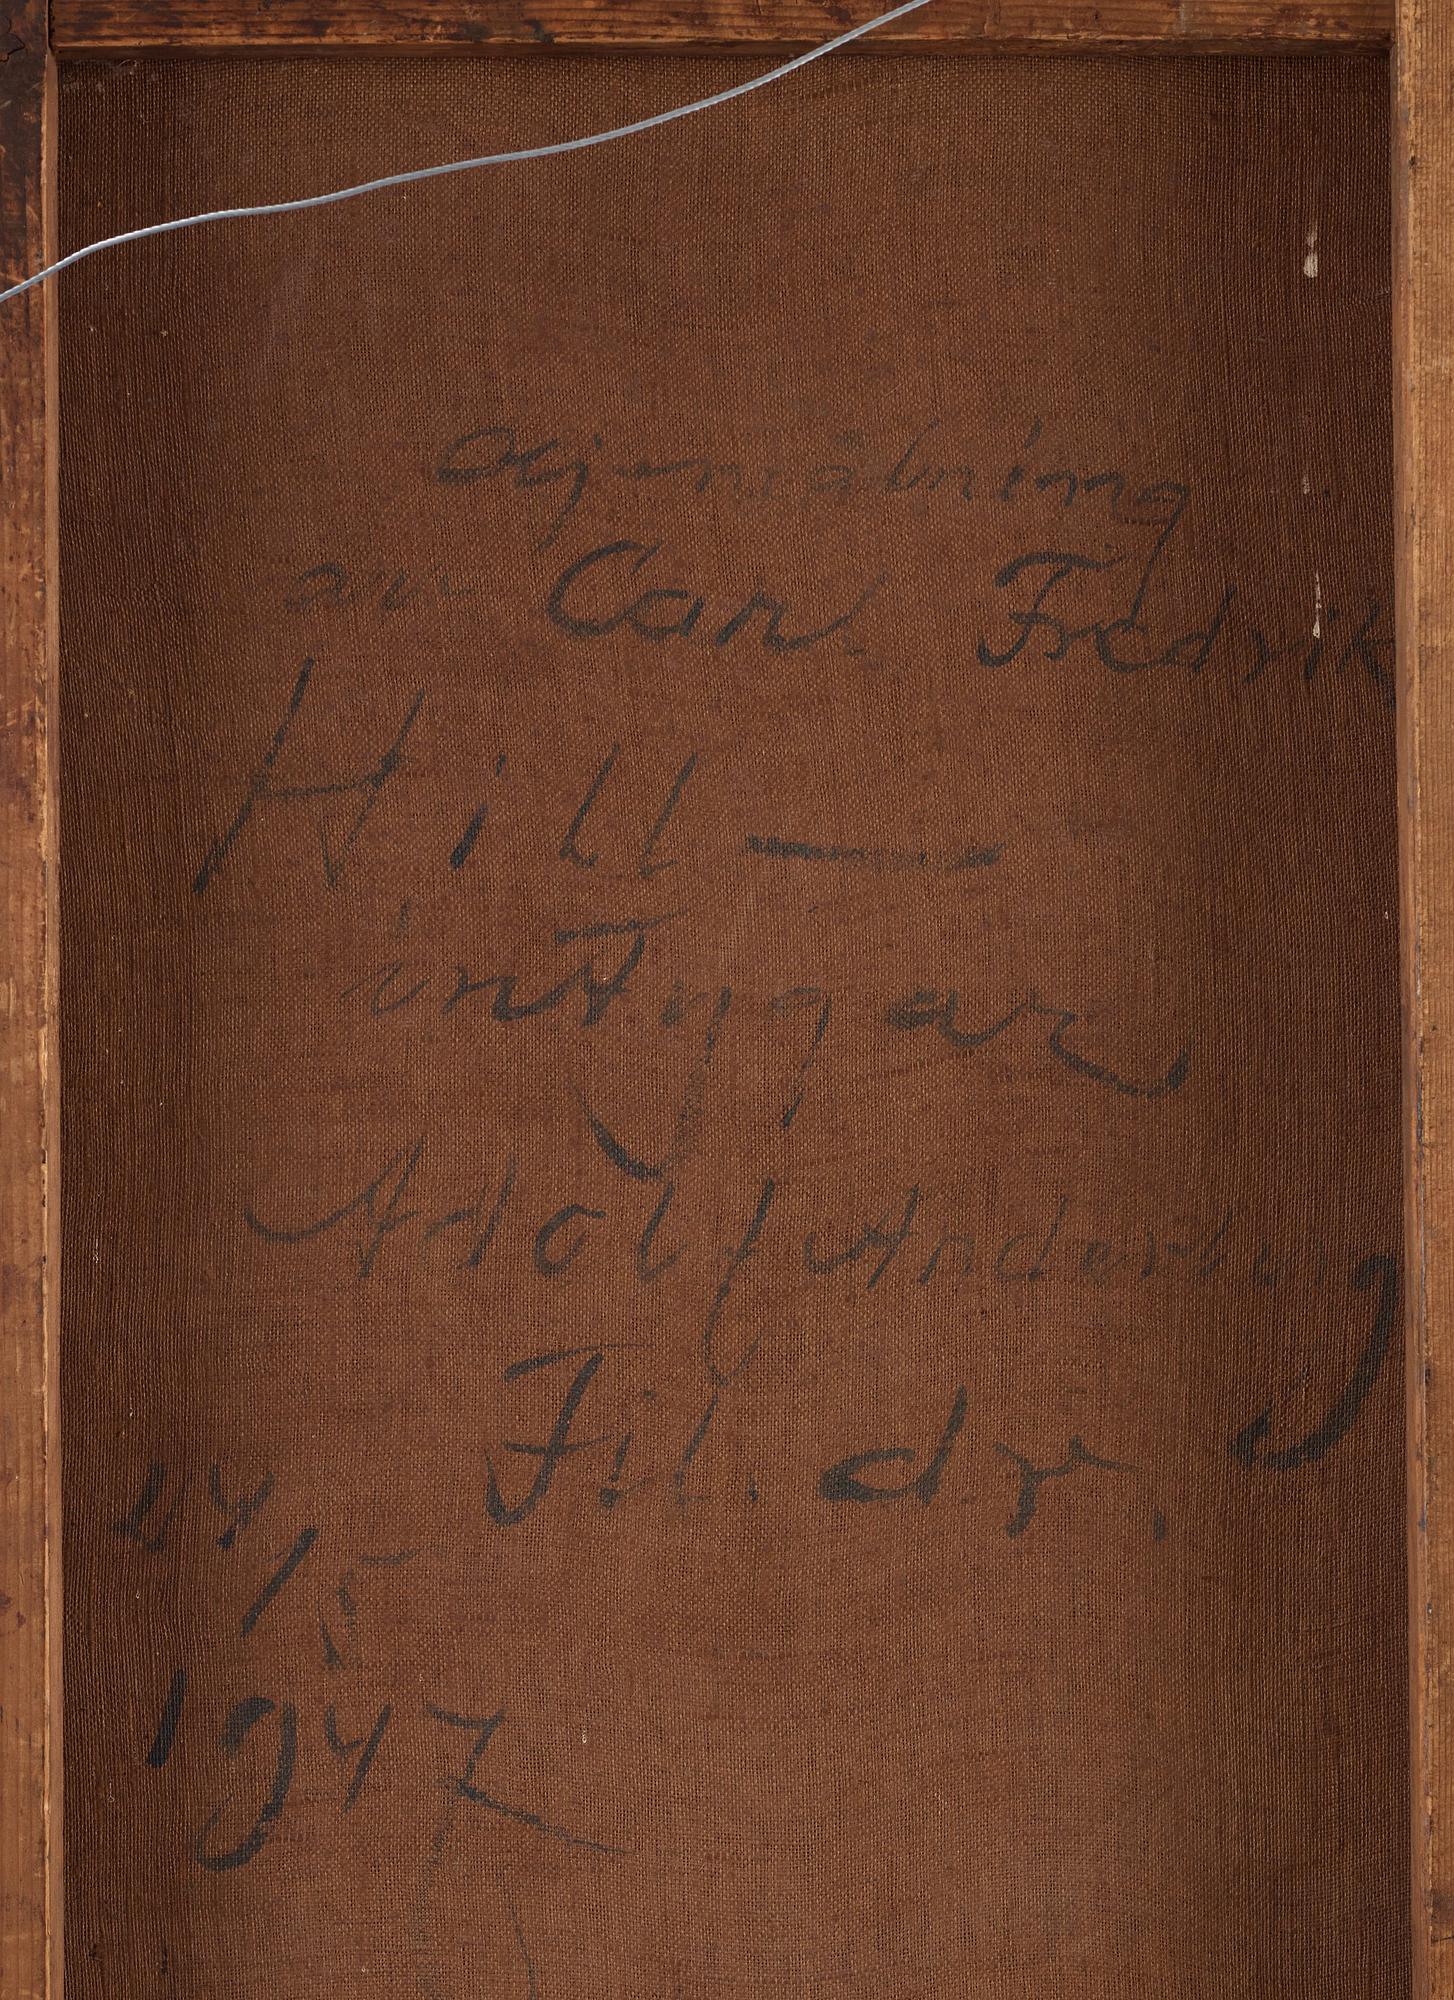 Oljemålning
av Carl Fredrik
Hill —
intygar
Adolf Anderberg
Fil. dr.
24/5
1947